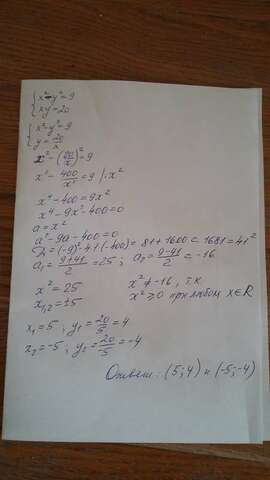 { x² - y² = 9
{ xy = 20
{ x² - y² = 9
{ y = 20/x
x² - (20/x)² = 9
x² - 400/x² = 9 | · x²
x⁴ - 400 = 9x²
x⁴ - 9x² - 400 = 0
a = x²
a² - 9a - 400 = 0
D = (-9)² - 4·1·(-400) = 81 + 1600 = 1681 = 41²
a₁ = (9+41)/2 = 25; a₂ = (9-41)/2 = -16
x² = 25 x² ≠ -16, т.к
x₁,₂ = ±5 x² ≥ 0 при любом x∈R
x₁ = 5; y₁ = 20/5 = 4
x₂ = -5; y₂ = 20/-5 = -4
Ответ: (5; 4) и (-5; -4)